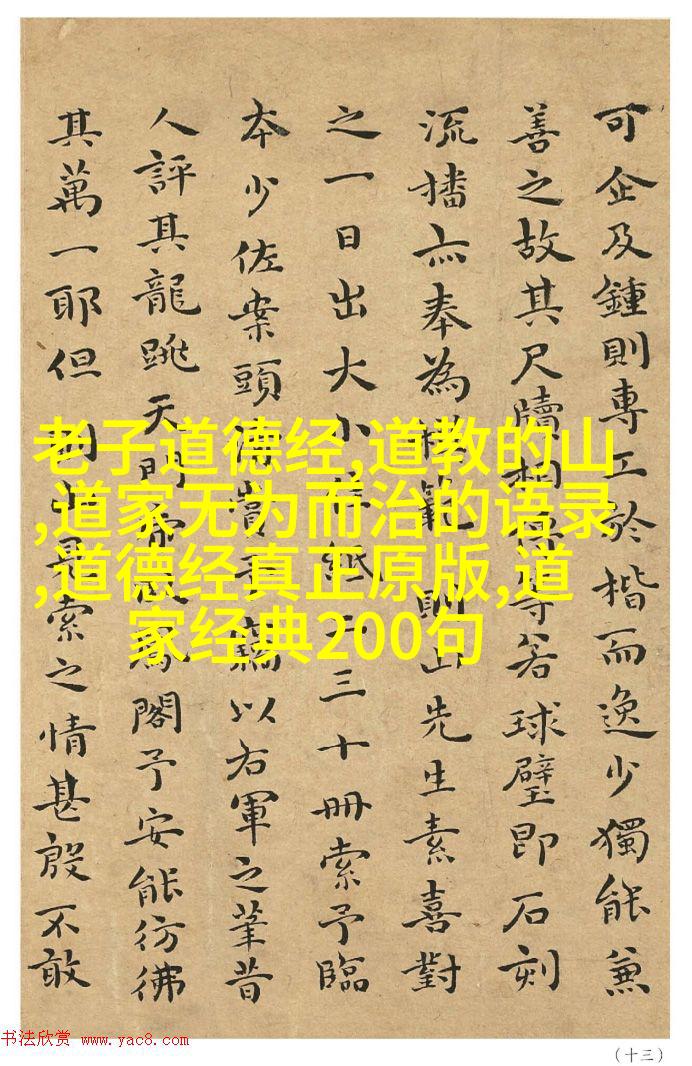 可企及鍾則專工於楷而逸少獨能兼
善之故其尺牘相等若球璧即石刻
流播亦奉為模範則山先生素喜對
之一日出大小佳紙二三十冊索予臨
本少佐案頭清賞予竊以右軍之筆昔
人評其龍跳天門虎臥鳳閣予安能彷彿
其萬一耶但則山見索之情甚殷不敢
老子道德经,道教的山
,道家无为而治的语录
,道德经真正原版,道
家经典200句
书法欣赏 www.yac8.com
(十三)